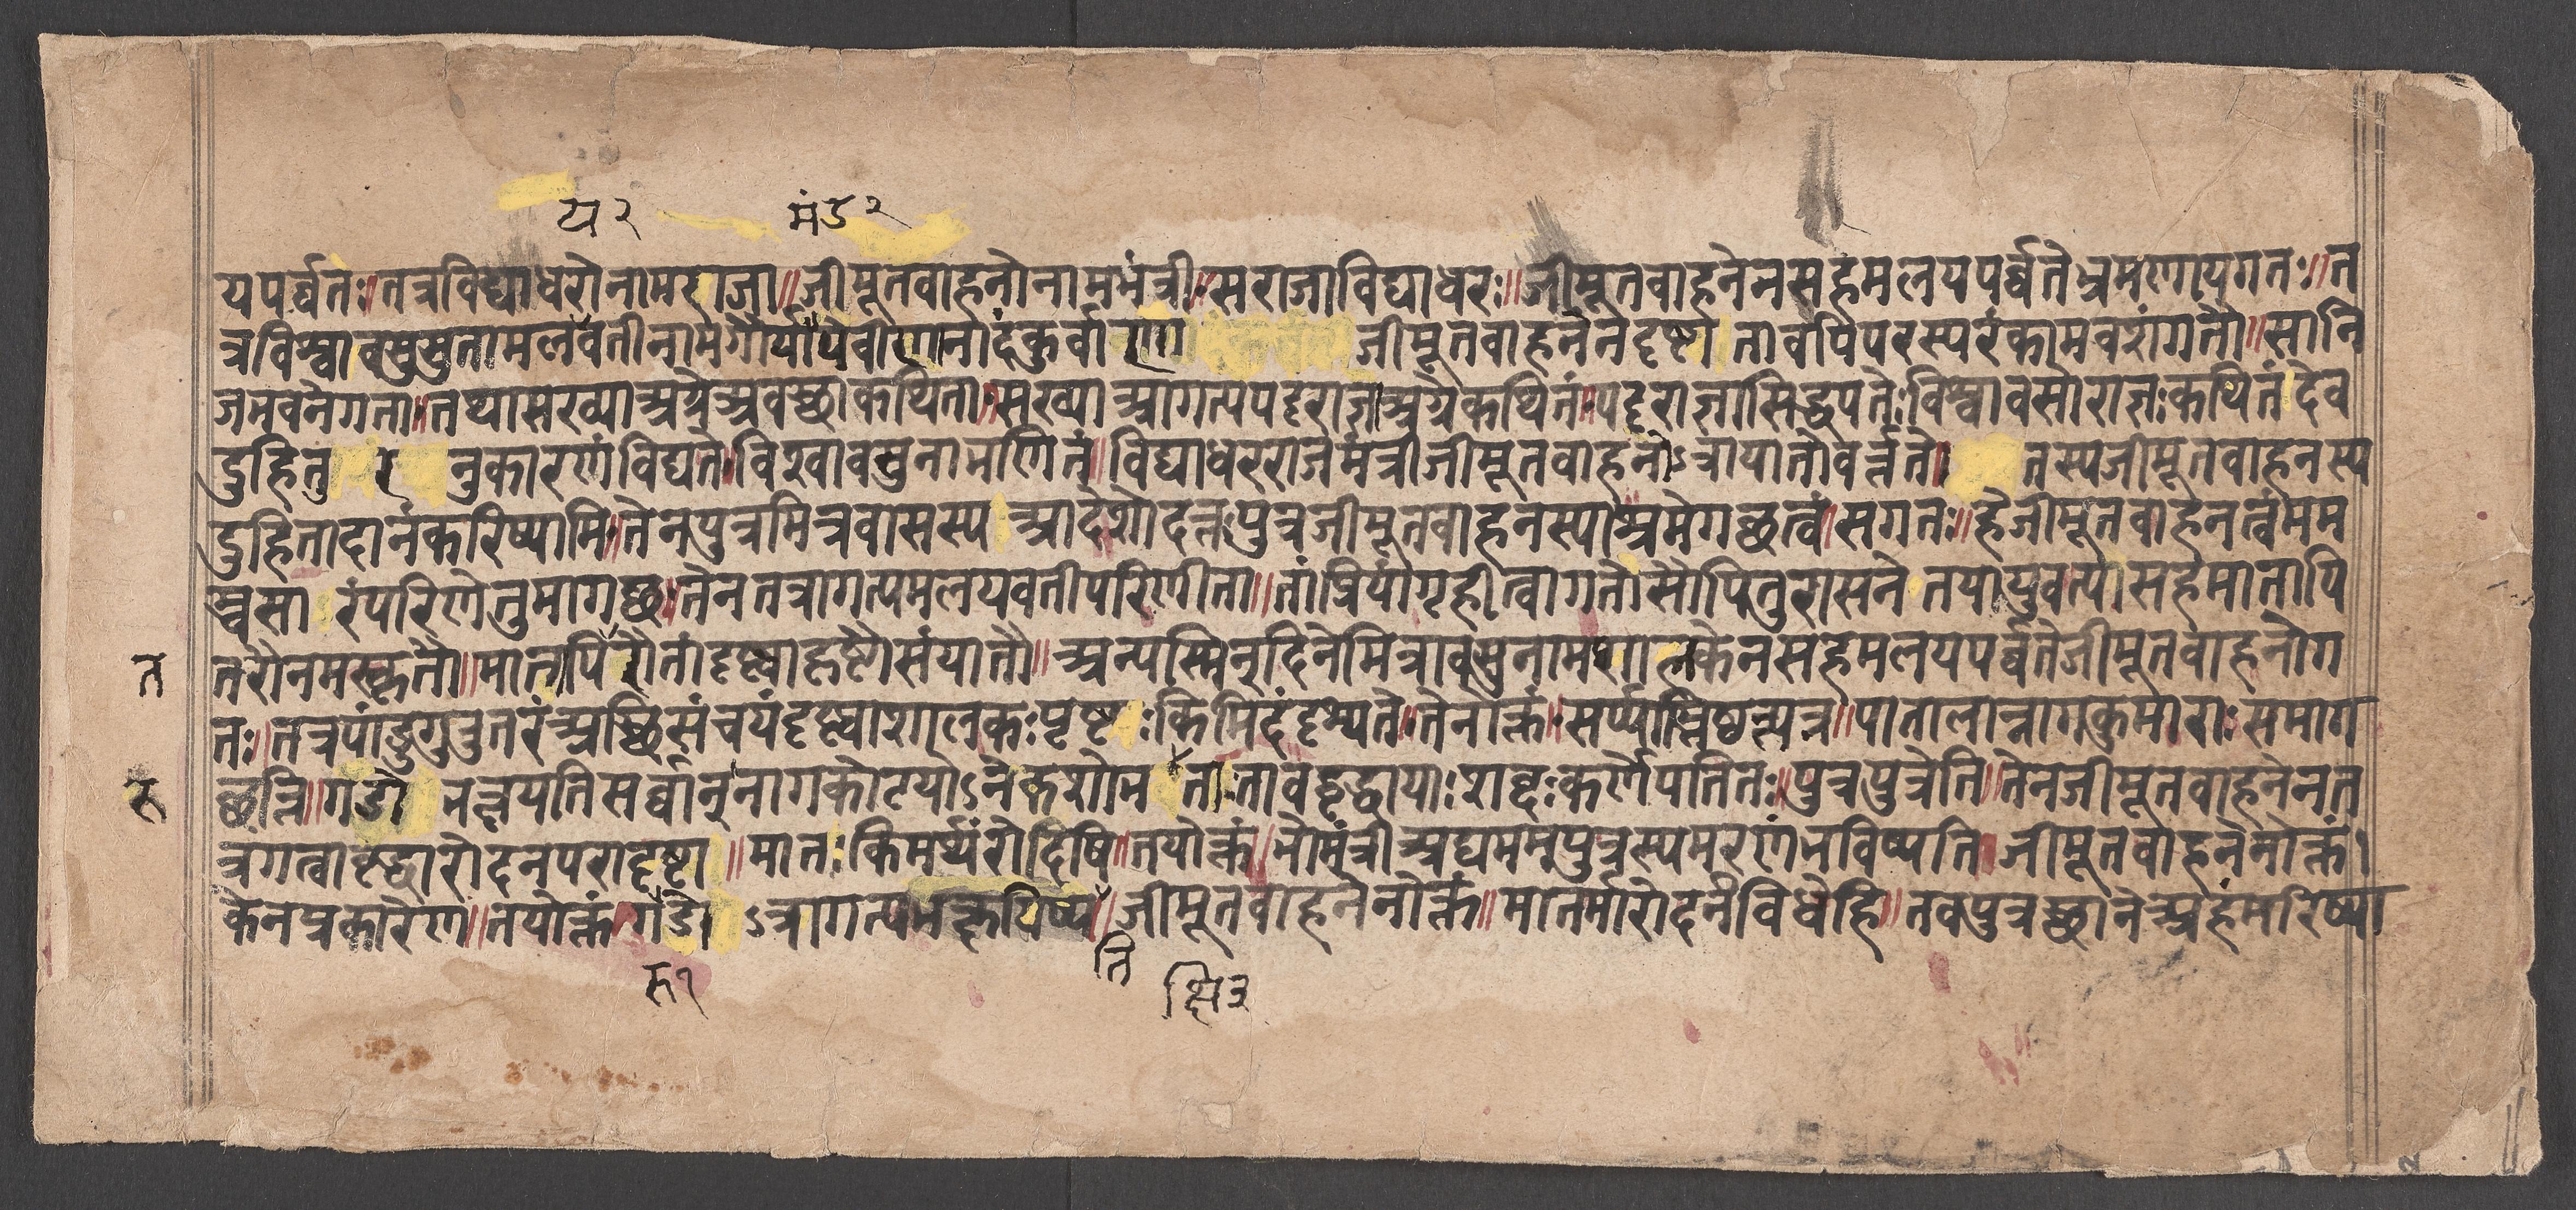 य २ मं ऽ २
यपर्व्वतः॥तत्रविद्याधरोनामराजा॥जीमूतवाहनोनाममंत्री॥सराजाविद्याधरः॥जीमूतवाहनेनसहमलयपर्व्वतेभ्रमणायगतः॥त
त्रविश्वावसुसुतामलवतीनामगौर्याग्रेवीणानादंकुर्वा जीमूतवाहनेनदृष्टा तावपिपरस्परंकामवशंगतौ॥सानि
जभवनेगता॥तथासख्याअग्रेअवस्थाकथिता॥सख्याआगत्यपट्टराज्ञाअग्रेकथितं॥पट्टराज्ञासिद्धपतेःविश्वावसोराज्ञःकथितं देव
दुहितु नुकारणंविद्यते॥विश्वावसुनाभणितं॥विद्याधरराजमंत्रीजीमूतवाहनोऽत्रायातोवर्त्तते॥ तस्यजीमूतवाहनस्य
दुहितादानंकरिष्यामि॥तेनपुत्रमित्रवासस्य आदेशोदत्तःपुत्रजीमूतवाहनस्याश्रमेगच्छत्वं॥सगतः॥हेजीमूतवाहनत्वंमम
स्वसा रंपरिणेतुमागच्छ॥तेनतत्रागत्यमलयवतीपरिणीता॥तांप्रियांगृहीत्वागतोसौपितुरासने तयायुवत्या सहमातापि
तरौनमस्कृतौ॥मातापितरौतांदृष्ट्वाहृष्टौसंयातौ॥अन्यस्मिन्दिनेमित्रावसुनामशालकेनसहमलयपर्व्वतेजीमूतवाहनोग
त
तः॥तत्रपांडुगुरुतरंअस्थिसंचयंदृष्ट्वाशालकःपृष्टःकिमिदंदृश्यते॥तेनोक्तं॥सर्प्पास्तिष्ठन्त्यत्र॥पातालान्नागकुमाराःसमाग
च्छन्ति॥गडो भक्षयतिसर्व्वान्नागकोटयोऽनेकशोभ ताःतावद्वृद्धायाःशब्दःकर्णेपतितः॥पुत्रपुत्रेति॥तेनजीमूतवाहनेनत
रू
त्रगत्वावृद्धारोदनपरादृष्टा॥मातःकिमर्थंरोदिषि॥तयोक्तं॥भोमंत्रीअद्यममपुत्रस्यमरणंभविष्यति॥जीमूतवाहनेनोक्तं।
केनप्रकारेण॥तयोक्तंगडो ऽत्रागत्यभक्षयिष्य॥जीमूतवाहनेनोक्तं॥मातर्मारोदनंविधेहि॥तवपुत्रस्थानेअहंमरिष्या
रु १ ति
क्षि ३